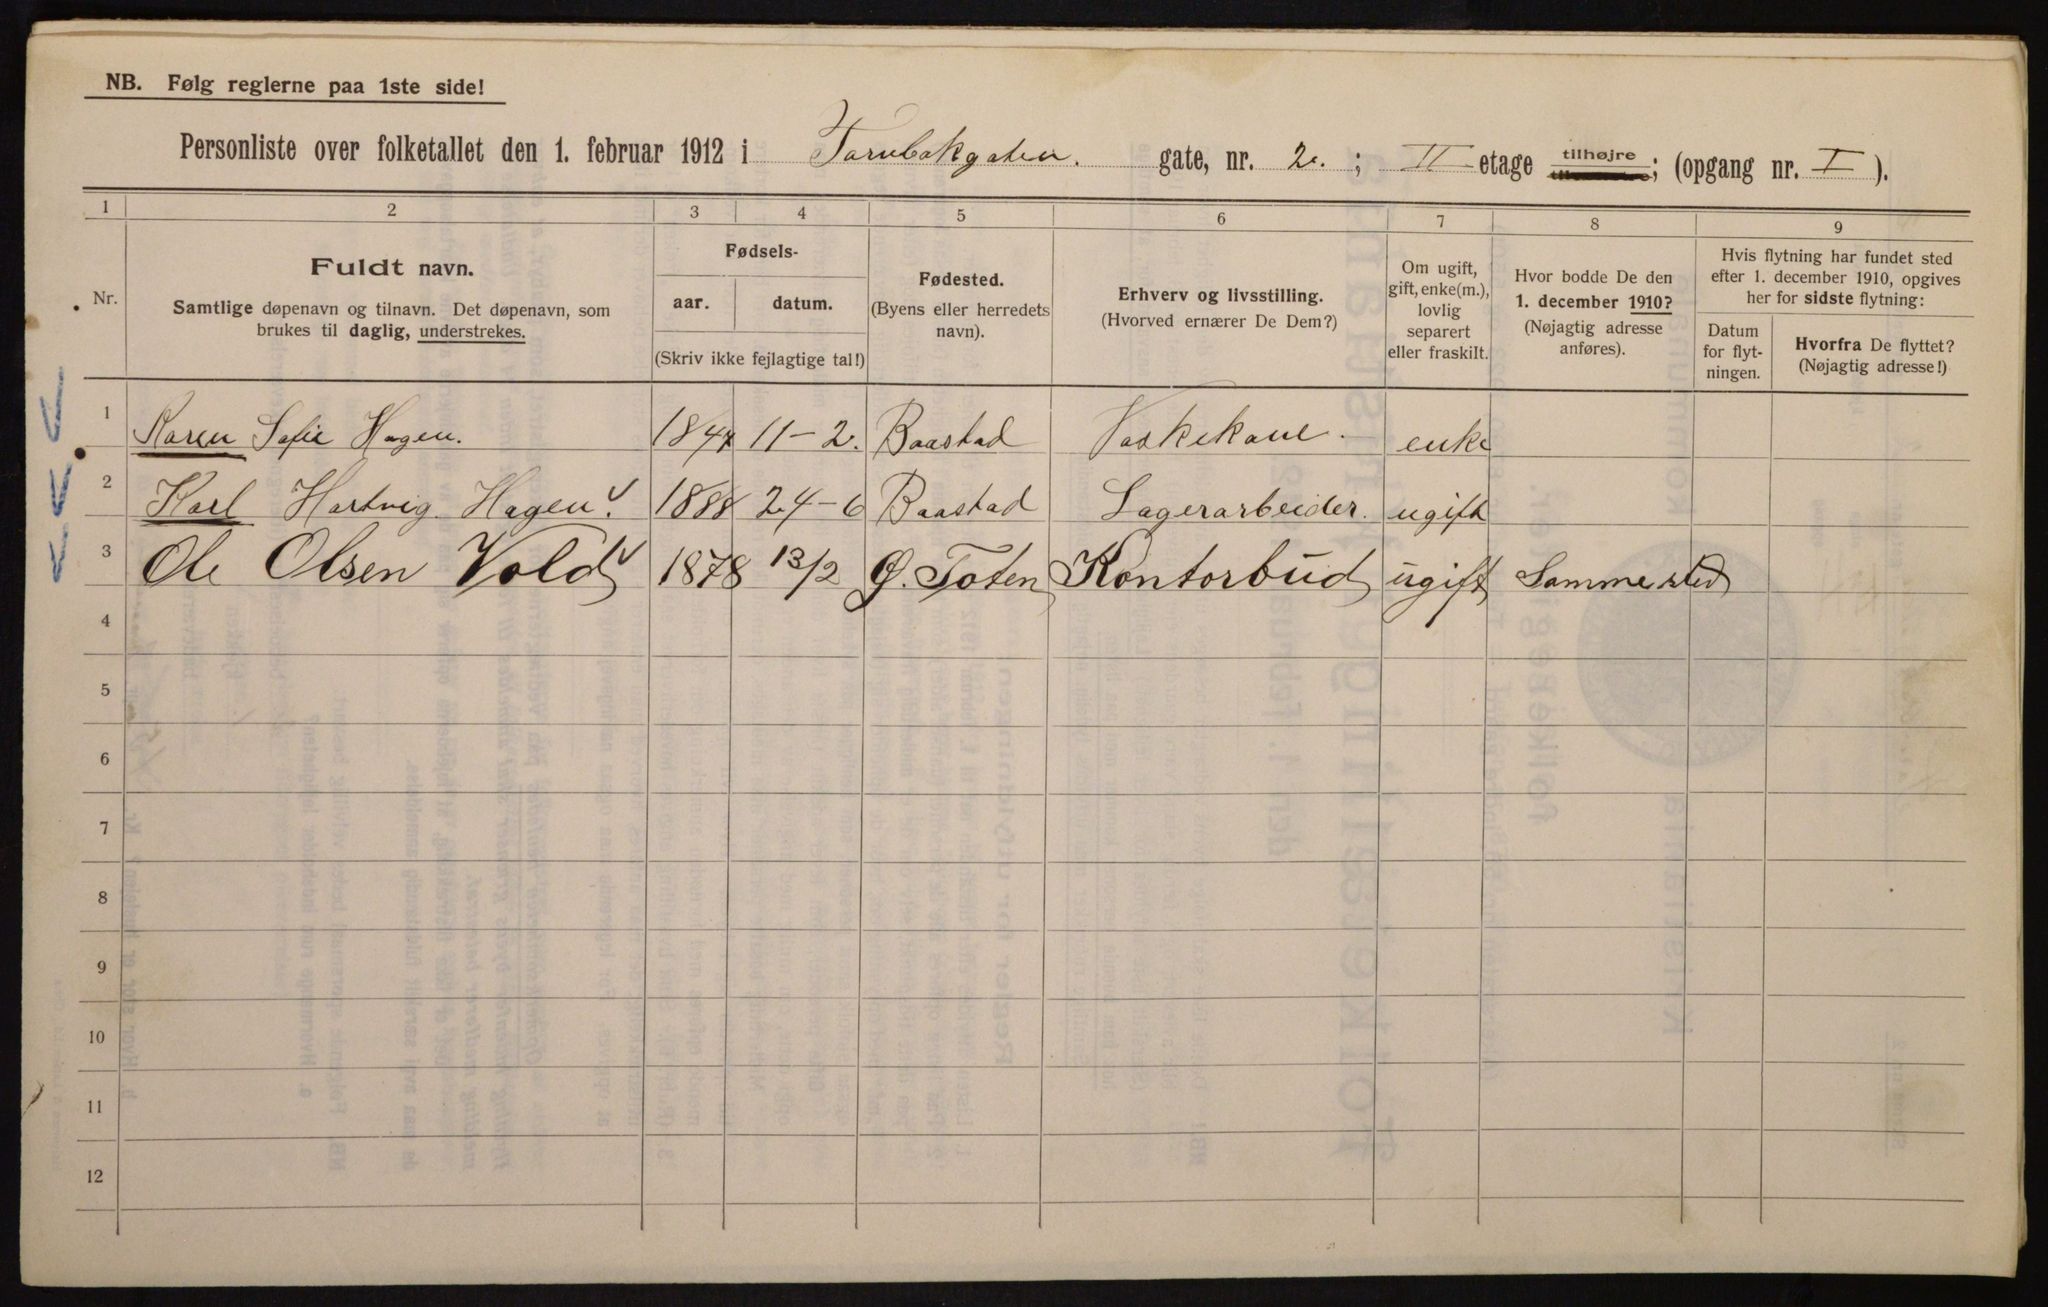 NB. Følg reglerne paa 1ste side!
Personliste over folketallet den 1. februar 1912 i Tarubakgaten. gate, nr. 2.; II etage tilhøjre; (opgang nr. I).
1 2 3 4 5 6 7 8 9
Nr.
Fuldt navn.
Samtlige døpenavn og tilnavn. Det døpenavn, som
brukes til daglig, understrekes.
Fødsels-
aar. datum.
(Skriv ikke fejlagtige tal!)
Fødested.
(Byens eller herredets
navn).
Erhverv og livsstilling.
(Hvorved ernærer De Dem?)
Om ugift,
gift, enke(m.),
lovlig
separert
eller fraskilt.
Hvor bodde De den
1. december 1910?
(Nøjagtig adresse
anføres).
Hvis flytning har fundet sted
efter 1. december 1910, opgives
her for sidste flytning:
Datum
for flyt-
ningen.
Hvorfra De flyttet?
(Nøjagtig adresse!)
1 Karen Sofie Hagen. 1844 11-2. Baastad Vaskekone. enke
2 Karl Hartvig Hagen. 1888 24-6 Baastad Lagerarbeider. ugift
3 Ole Olsen Vold 1878 13/2 Ø. Toten Kontorbud ugift Samme sted
4
5
6
7
8
9
10
11
12